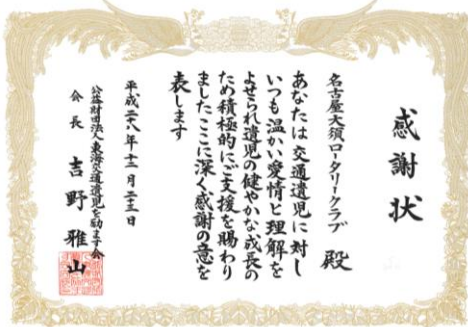 感謝状
名古屋大須ロータリークラブ 殿
あなたは交通遺児に対し
いつも温かい愛情と理解を
よせられ遺児の健やかな成長の
ため積極的にご支援を賜わり
ましたここに深く感謝の意を
表します
平成二十八年十二月二十三日
公益財団法人東海交通遺児を励ます会
会長 吉野雅山